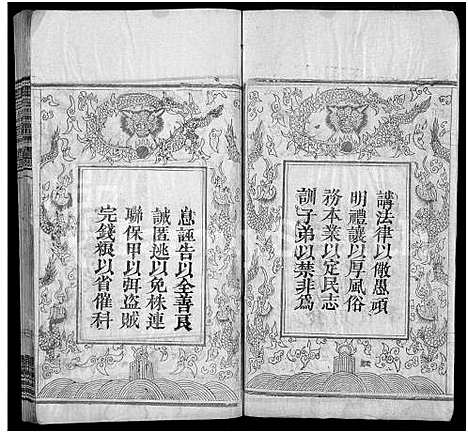 講法律以儆愚頑
明禮讓以厚風俗
務本業以定民志
訓子弟以禁非為
息誣告以全善良
誡匿逃以免株連
聯保甲以弭盜賊
完錢糧以省催科